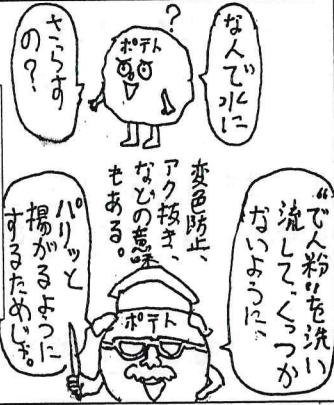 なんで水に
さらす
の？
？
ポテト
"でん粉"を洗い
流して、くっつか
ないように、
変色防止、
アク抜き、
などの意味
もある。
パリッと
揚がるように
するためじゃ。
ポテト